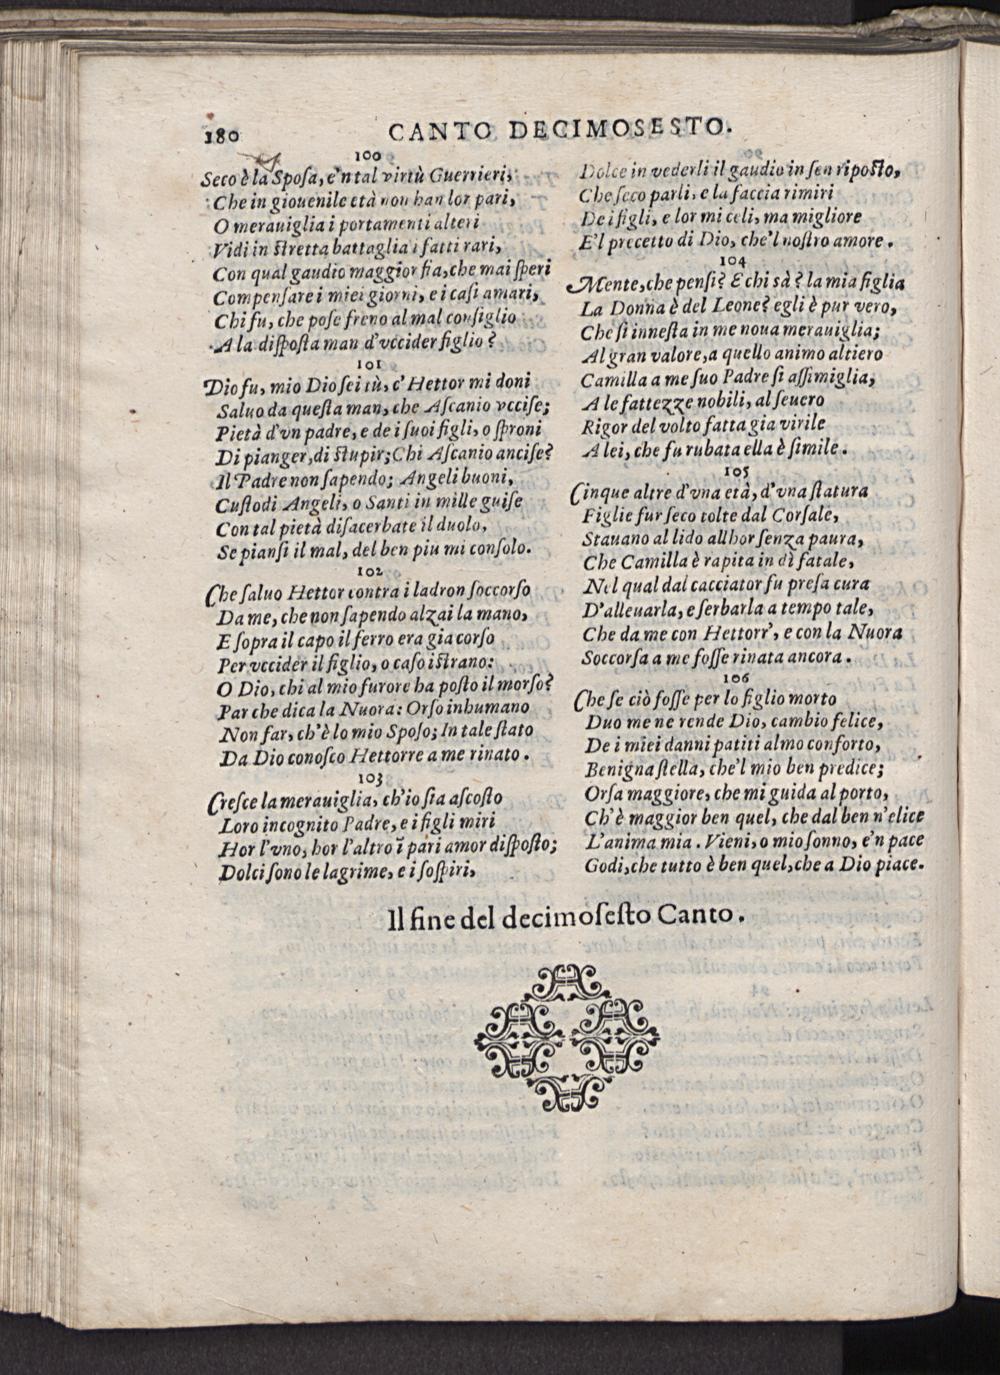 180
CANTO DECIMOSESTO.
100
Seco è la Spoſa, e'n tal virtù Guerrieri,
Che in giouenile età non han lor pari,
O merauiglia i portamenti alteri
Vidi in ſtretta battaglia i fatti rari,
Con qual gaudio maggior fia, che mai ſperi
Compenſare i miei giorni, e i caſi amari,
Chi fu, che poſe freno al mal conſiglio
A la diſpoſta man d'vccider figlio?
101
Dio fu, mio Dio ſei tù, c'Hettor mi doni
Saluo da queſta man, che Aſcanio vcciſe;
Pietà d'vn padre, e de i ſuoi figli, o ſproni
Di pianger, di ſtupir; Chi Aſcanio anciſe?
Il Padre non ſapendo; Angeli buoni,
Cuſtodi Angeli, o Santi in mille guiſe
Con tal pietà diſacerbate il duolo,
Se pianſi il mal, del ben piu mi conſolo.
102
Che ſaluo Hettor contra i ladron ſoccorſo
Da me, che non ſapendo alzai la mano,
E ſopra il capo il ferro era gia corſo
Per vccider il figlio, o caſo iſtrano:
O Dio, chi al mio furore ha poſto il morſo?
Par che dica la Nuora: Orſo inhumano
Non far, ch'è lo mio Spoſo; In tale ſtato
Da Dio conoſco Hettorre a me rinato.
103
Creſce la merauiglia, ch'io ſia aſcoſto
Loro incognito Padre, e i figli miri
Hor l'vno, hor l'altro ĩ pari amor diſpoſto;
Dolci ſono le lagrime, e i ſoſpiri,
Dolce in vederli il gaudio in ſen ripoſto,
Che ſeco parli, e la faccia rimiri
De i figli, e lor mi celi, ma migliore
E'l precetto di Dio, che'l noſtro amore.
104
Mente, che penſi? E chi sà? la mia figlia
La Donna è del Leone? egli è pur vero,
Che ſi inneſta in me noua merauiglia;
Al gran valore, a quello animo altiero
Camilla a me ſuo Padre ſi aſſimiglia,
A le fattezze nobili, al ſeuero
Rigor del volto fatta gia virile
A lei, che fu rubata ella è ſimile.
105
Cinque altre d'vna età, d'vna ſtatura
Figlie fur ſeco tolte dal Corſale,
Stauano al lido allhor ſenza paura,
Che Camilla è rapita in dì fatale,
Nel qual dal cacciator fu preſa cura
D'alleuarla, e ſerbarla a tempo tale,
Che da me con Hettorr', e con la Nuora
Soccorſa a me foſſe rinata ancora.
106
Che ſe ciò foſſe per lo figlio morto
Duo me ne rende Dio, cambio felice,
De i miei danni patiti almo conforto,
Benigna ſtella, che'l mio ben predice;
Orſa maggiore, che mi guida al porto,
Ch'è maggior ben quel, che dal ben n'elice
L'anima mia. Vieni, o mio ſonno, e'n pace
Godi, che tutto è ben quel, che a Dio piace.
Il fine del decimoſeſto Canto.